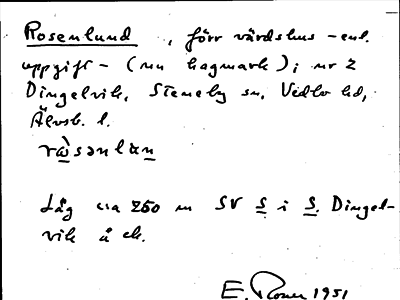 Rosenlund , förr värdshus - enl.
uppgift - (nu hagmark); nr 2
Dingelvik, Steneby sn, Vedbo hd,
Älvsb. l.
Låg ca 250 m SV S i S. Dingel-
vik å ek.
E. 1951